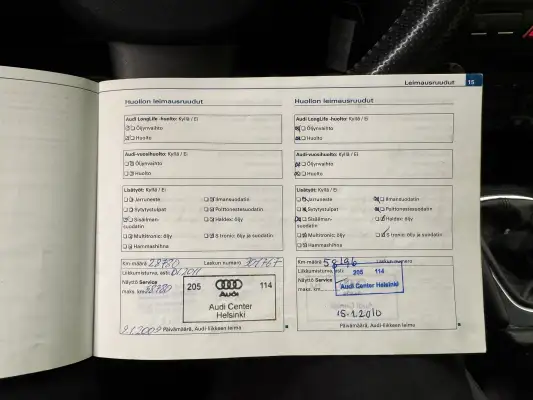 Leimausruudut 15
Huollon leimausruudut
Audi LongLife -huolto: Kyllä / Ei
Öljynvaihto
Huolto
Audi-vuosihuolto: Kyllä / Ei
Öljynvaihto
Huolto
Lisätyöt: Kyllä / Ei
Jarruneste
Ilmansuodatin
Sytytystulpat
Polttonestesuodatin
Sisäilman-
suodatin
Haldex öljy
Multitronic: öljy
S tronic: öljy ja suodatin
Hammashihna
Km-määrä 28780 Laskun numero
Liikkumisturva, asti:
Näyttö Service
maks. km
205 Audi 114
Audi Center
Helsinki
9.1.2009 Päivämäärä, Audi-liikkeen leima
Huollon leimausruudut
Audi LongLife -huolto: Kyllä / Ei
Öljynvaihto
Huolto
Audi-vuosihuolto: Kyllä / Ei
Öljynvaihto
Huolto
Lisätyöt: Kyllä / Ei
Jarruneste
Ilmansuodatin
Sytytystulpat
Polttonestesuodatin
Sisäilman-
suodatin
Haldex öljy
Multitronic: öljy
S tronic: öljy ja suodatin
Hammashihna
Km-määrä 58196 Laskun numero
Liikkumisturva, asti:
Näyttö Service
maks. km
205 114
Audi Center Helsinki
15.1.2010
Päivämäärä, Audi-liikkeen leima